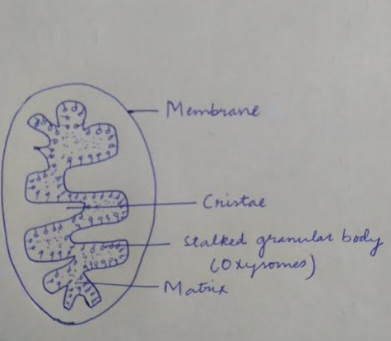 Membrane
Cristae
Stalked granular body
(Oxysomes)
Matrix